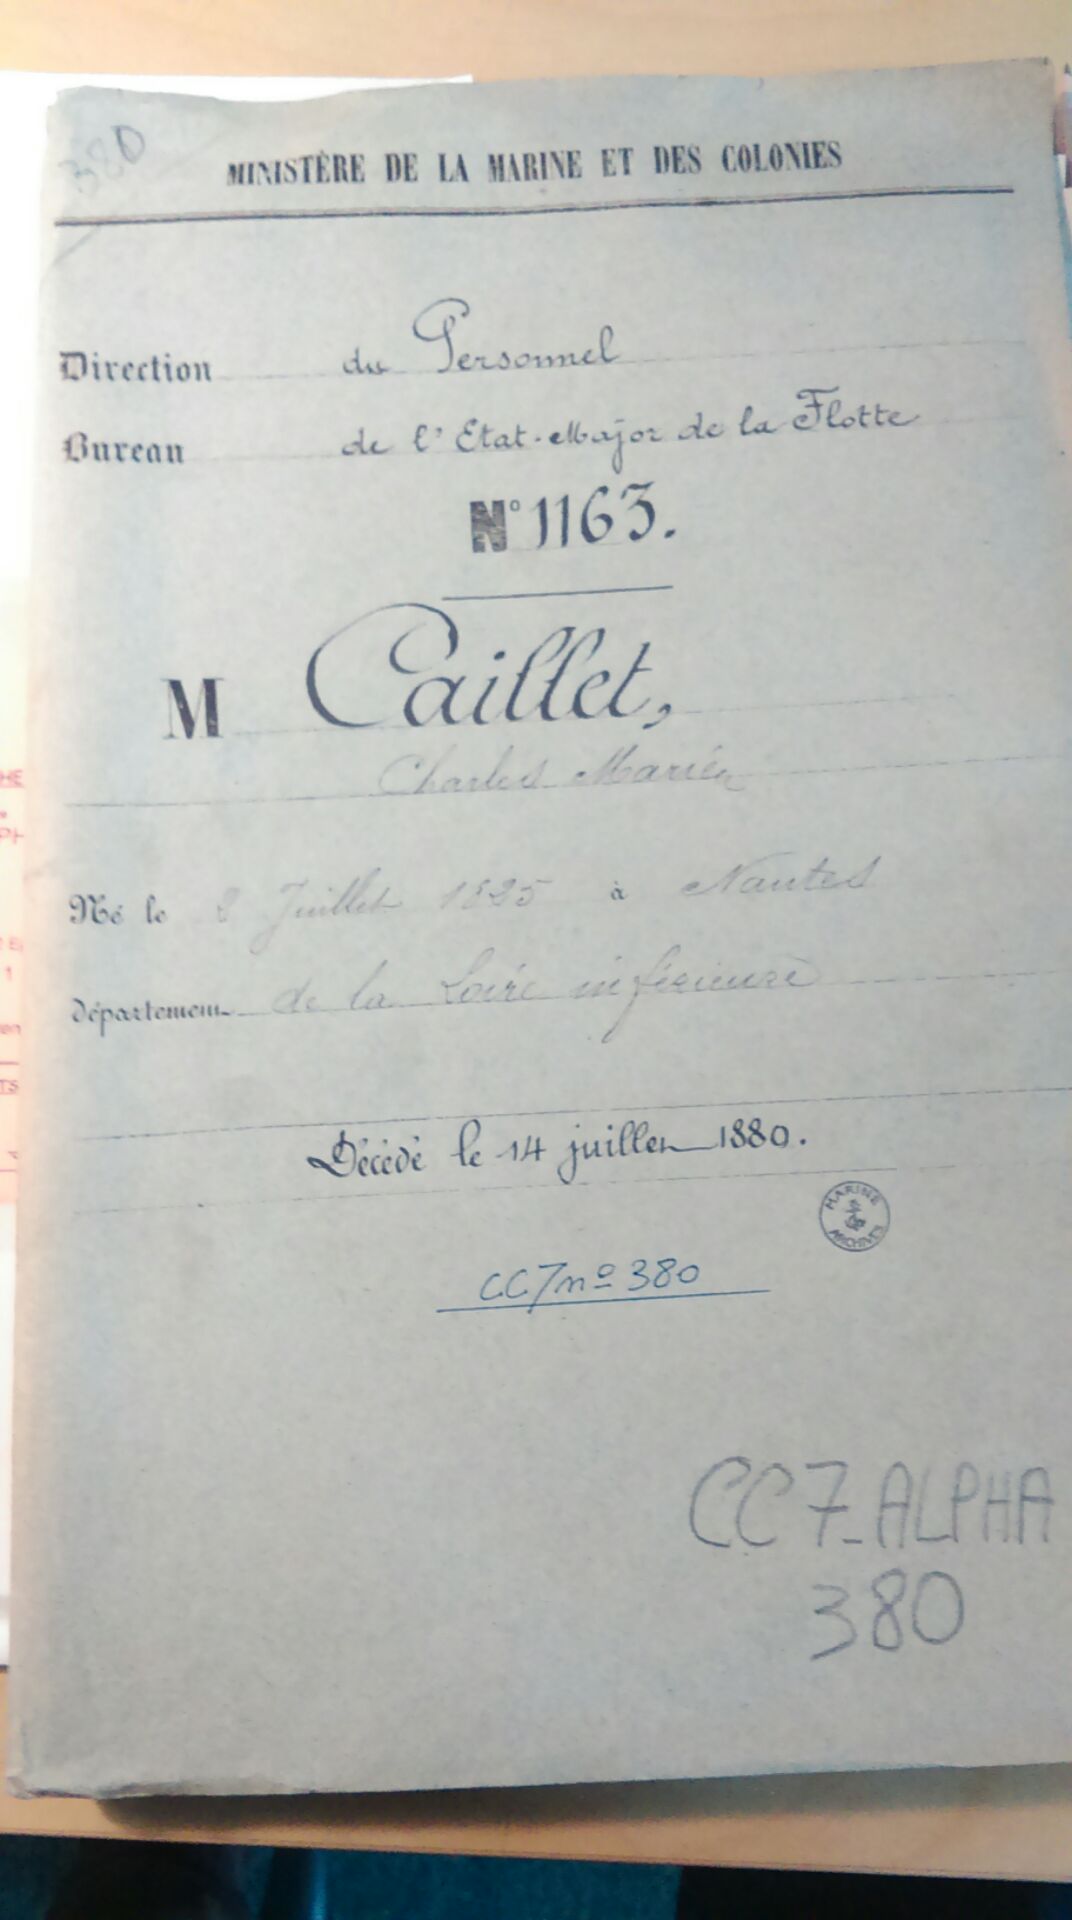 380
MINISTÈRE DE LA MARINE ET DES COLONIES
Direction du Personnel
Bureau de l'Etat-Major de la Flotte
N° 1163.
M Caillet,
Charles Marie
Né le 2 Juillet 1825 à Nantes
département de la Loire inférieure
Décédé le 14 juillet 1880.
MARINE
ARCHIVES
CC7 nº 380
CC7_ALPHA
380